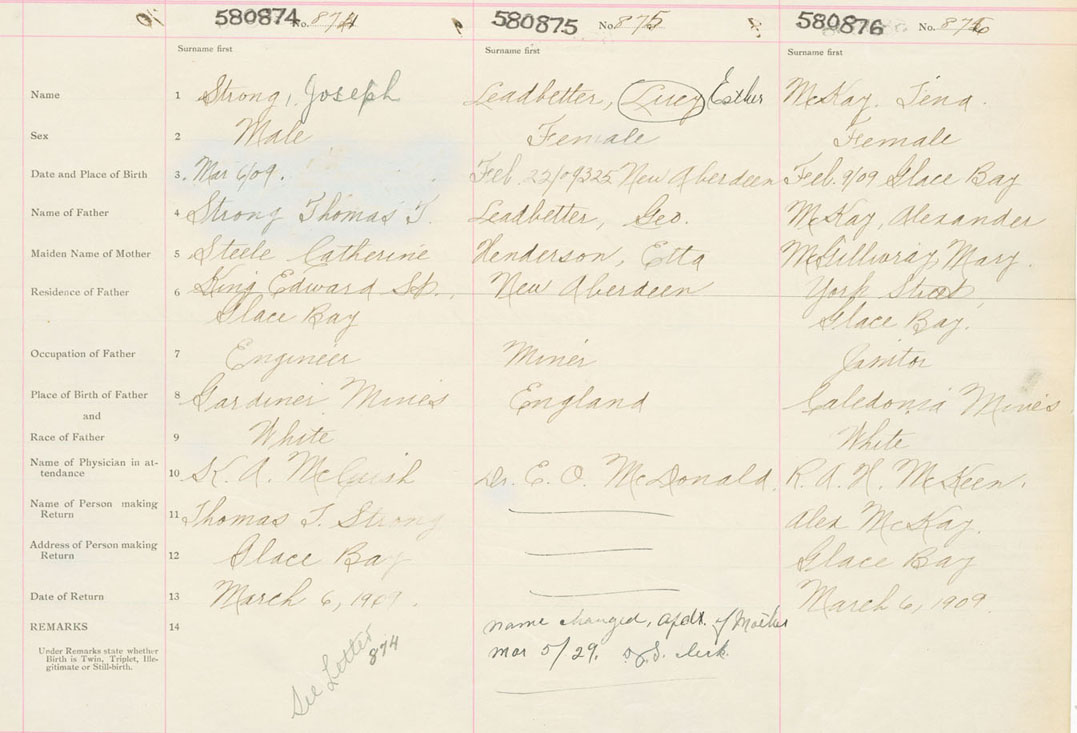 580874 No. 874 580875 No. 875 580876 No. 876
Surname first Surname first Surname first
Name 1 Strong, Joseph Leadbetter, Lucy Esther McKay, Tena.
Sex 2 Male Female Female
Date and Place of Birth 3. Mar 6/09. Feb 22/09 325 New Aberdeen Feb. 9/09 Glace Bay
Name of Father 4 Strong Thomas T. Leadbetter, Geo. McKay, Alexander
Maiden Name of Mother 5 Steele Catherine Henderson, Etta McGillivray, Mary.
Residence of Father 6 King Edward St., New Aberdeen York Street,
Glace Bay Glace Bay.
Occupation of Father 7 Engineer Miner Janitor
Place of Birth of Father 8 Gardiner Mines England Caledonia Mines
and
Race of Father 9 White White
Name of Physician in at-
tendance 10 K. A. McCuish Dr. E. O. McDonald. R. A. H. McKeen.
Name of Person making
Return 11 Thomas T. Strong Alex McKay.
Address of Person making
Return 12 Glace Bay Glace Bay
Date of Return 13 March 6, 1909. March 6, 1909.
REMARKS 14 name changed, apdt. of Mother
Under Remarks state whether
Birth is Twin, Triplet, Ille-
gitimate or Still-birth.
mar 5/29. clerk.
See Letter 874